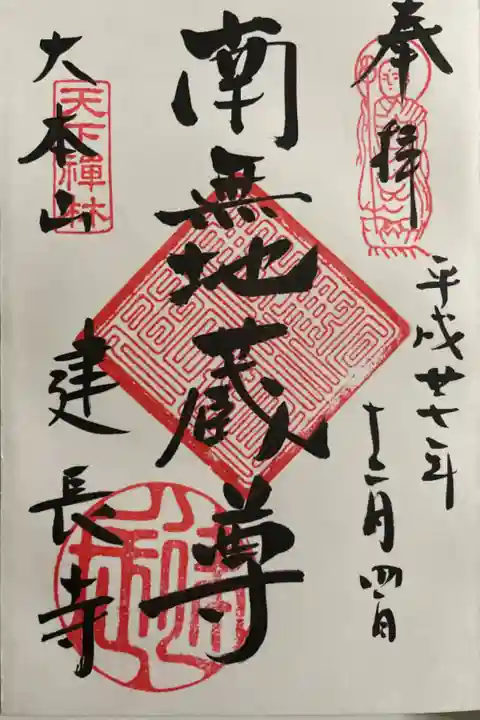 奉拝
平成廿七年
十二月四日
南無地蔵尊
大本山
天下禅林
建長寺